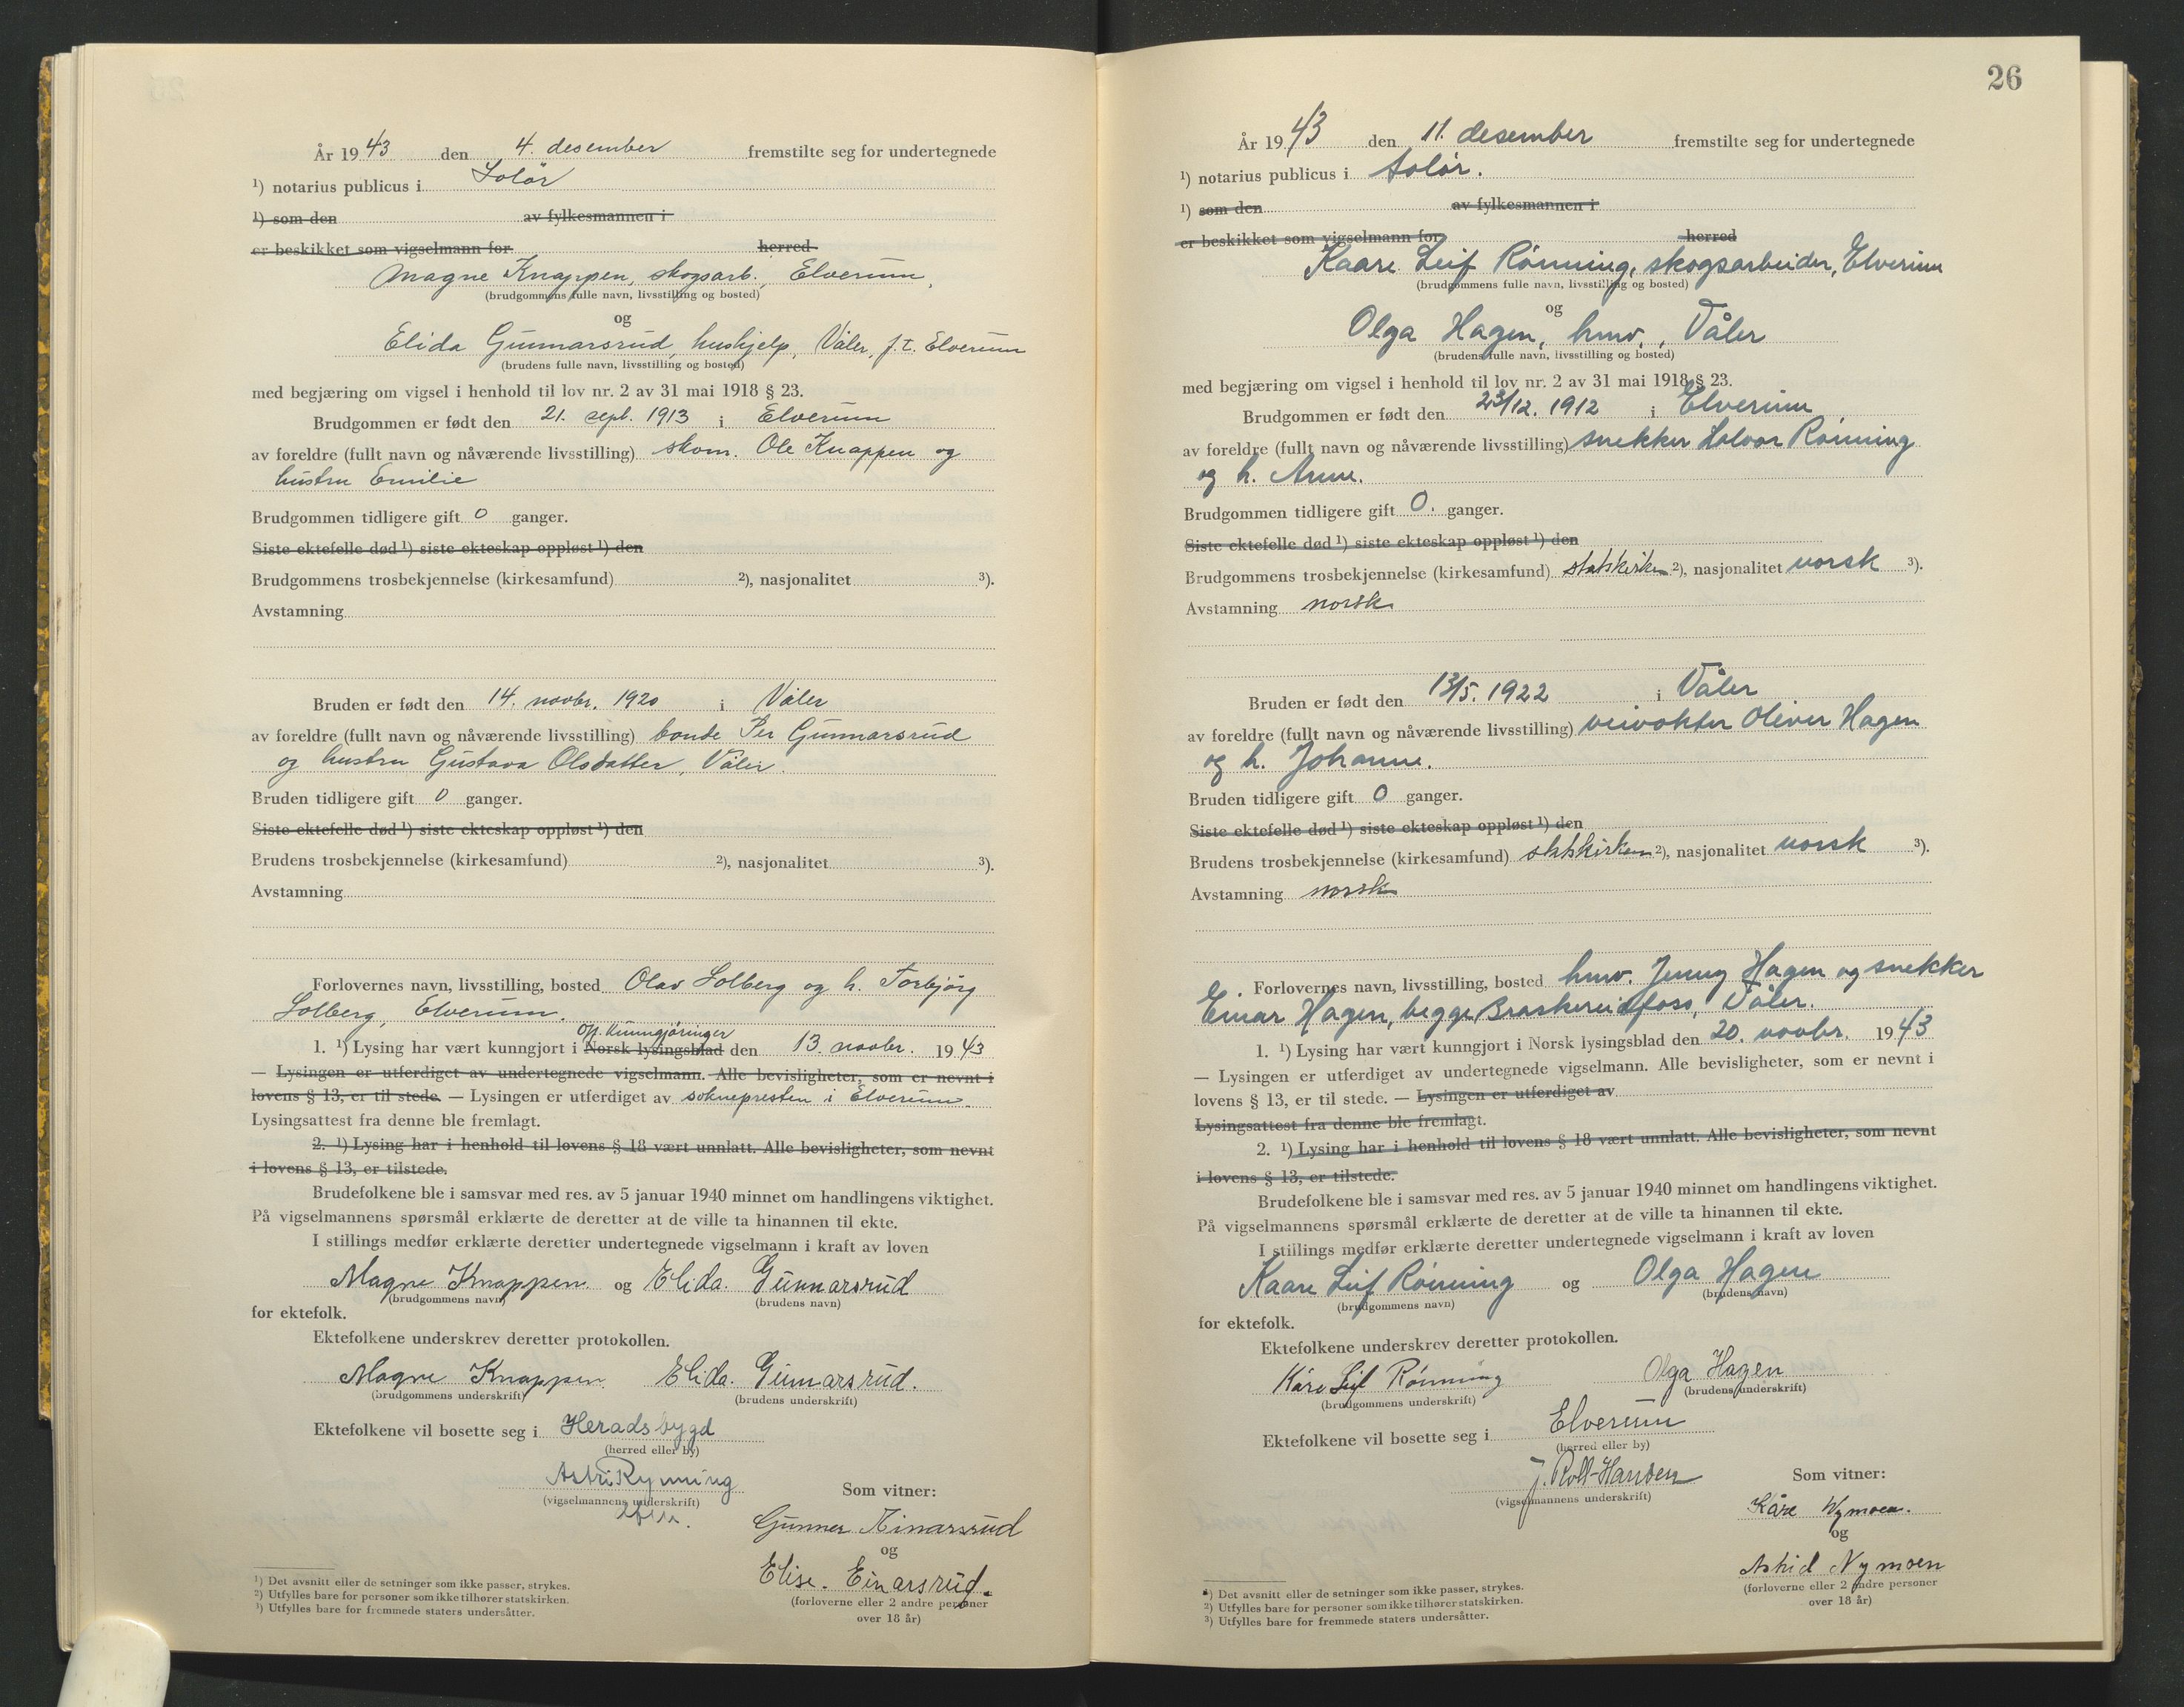 År 1943 den 4. desember fremstilte seg for undertegnede
¹) notarius publicus i Solör
¹) som den av fylkesmannen i
er beskikket som vigselmann for herred
Magne Knappen, skogsarb. Elverum,
(brudgommens fulle navn, livsstilling og bosted)
og
Elida Gunnarsrud, hushjelp, Våler, f.t. Elverum
(brudens fulle navn, livsstilling og bosted)
med begjæring om vigsel i henhold til lov nr. 2 av 31 mai 1918 § 23.
Brudgommen er født den 21. sept. 1913 i Elverum
av foreldre (fullt navn og nåværende livsstilling) skom. Ole Knappen og
hustru Emilie
Brudgommen tidligere gift 0 ganger.
Siste ektefelle død ¹) siste ekteskap oppløst ¹) den
Brudgommens trosbekjennelse (kirkesamfund) ²), nasjonalitet ³).
Avstamning
Bruden er født den 14. novbr. 1920 i Våler
av foreldre (fullt navn og nåværende livsstilling) bonde Per Gunnarsrud
og hustru Gustava Olsdatter, Våler.
Bruden tidligere gift 0 ganger.
Siste ektefelle død ¹) siste ekteskap oppløst ¹) den
Brudens trosbekjennelse (kirkesamfund) ²), nasjonalitet ³).
Avstamning
Forlovernes navn, livsstilling, bosted Olav Solberg og h. Torbjörg
Solberg, Elverum.
off. kunngjøringer
1. ¹) Lysing har vært kunngjort i Norsk lysingsblad den 13. novbr. 1943
— Lysingen er utferdiget av undertegnede vigselmann. Alle bevisligheter, som er nevnt i
lovens § 13, er til stede. — Lysingen er utferdiget av soknepresten i Elverum.
Lysingsattest fra denne ble fremlagt.
2. ¹) Lysing har i henhold til lovens § 18 vært unnlatt. Alle bevisligheter, som nevnt
i lovens § 13, er tilstede.
Brudefolkene ble i samsvar med res. av 5 januar 1940 minnet om handlingens viktighet.
På vigselmannens spørsmål erklærte de deretter at de ville ta hinannen til ekte.
I stillings medfør erklærte deretter undertegnede vigselmann i kraft av loven
Magne Knappen og Elida Gunnarsrud
(brudgommens navn) (brudens navn)
for ektefolk.
Ektefolkene underskrev deretter protokollen.
Magne Knappen Elida Gunnarsrud.
(brudgommens underskrift) (brudens underskrift)
Ektefolkene vil bosette seg i Heradsbygd
(herred eller by)
Astri Rynning
(vigselmannens underskrift)
Som vitner:
Gunner Einarsrud
og
Elise. Einarsrud.
(forloverne eller 2 andre personer
over 18 år)
¹) Det avsnitt eller de setninger som ikke passer, strykes.
²) Utfylles bare for personer som ikke tilhører statskirken.
³) Utfylles bare for fremmede staters undersåtter.
26
År 1943 den 11. desember fremstilte seg for undertegnede
¹) notarius publicus i Solör.
¹) som den av fylkesmannen i
er beskikket som vigselmann for herred
Kaare Leif Rönning, skogsarbeider, Elverum
(brudgommens fulle navn, livsstilling og bosted)
og
Olga Hagen, hmv., Våler
(brudens fulle navn, livsstilling og bosted)
med begjæring om vigsel i henhold til lov nr. 2 av 31 mai 1918 § 23.
Brudgommen er født den 23/12. 1912 i Elverum
av foreldre (fullt navn og nåværende livsstilling) snekker Halvor Rönning
og h. Anne.
Brudgommen tidligere gift 0. ganger.
Siste ektefelle død ¹) siste ekteskap oppløst ¹) den
Brudgommens trosbekjennelse (kirkesamfund) statskirken ²), nasjonalitet norsk ³).
Avstamning norsk
Bruden er født den 13/5. 1922 i Våler
av foreldre (fullt navn og nåværende livsstilling) veivokter Oliver Hagen
og h. Johanne.
Bruden tidligere gift 0 ganger.
Siste ektefelle død ¹) siste ekteskap oppløst ¹) den
Brudens trosbekjennelse (kirkesamfund) statskirken ²), nasjonalitet norsk ³).
Avstamning norsk
Forlovernes navn, livsstilling, bosted hmv. Jenny Hagen og snekker
Einar Hagen, begge Braskereidfoss, Våler.
1. ¹) Lysing har vært kunngjort i Norsk lysingsblad den 20. novbr. 1943
— Lysingen er utferdiget av undertegnede vigselmann. Alle bevisligheter, som er nevnt i
lovens § 13, er til stede. — Lysingen er utferdiget av
Lysingsattest fra denne ble fremlagt.
2. ¹) Lysing har i henhold til lovens § 18 vært unnlatt. Alle bevisligheter, som nevnt
i lovens § 13, er tilstede.
Brudefolkene ble i samsvar med res. av 5 januar 1940 minnet om handlingens viktighet.
På vigselmannens spørsmål erklærte de deretter at de ville ta hinannen til ekte.
I stillings medfør erklærte deretter undertegnede vigselmann i kraft av loven
Kaare Leif Rönning og Olga Hagen
(brudgommens navn) (brudens navn)
for ektefolk.
Ektefolkene underskrev deretter protokollen.
Kåre Leif Rönning Olga Hagen
(brudgommens underskrift) (brudens underskrift)
Ektefolkene vil bosette seg i Elverum
(herred eller by)
J. Roll-Hansen
(vigselmannens underskrift)
Som vitner:
Kåre Nymoen.
og
Astrid Nymoen
(forloverne eller 2 andre personer
over 18 år)
¹) Det avsnitt eller de setninger som ikke passer, strykes.
²) Utfylles bare for personer som ikke tilhører statskirken.
³) Utfylles bare for fremmede staters undersåtter.